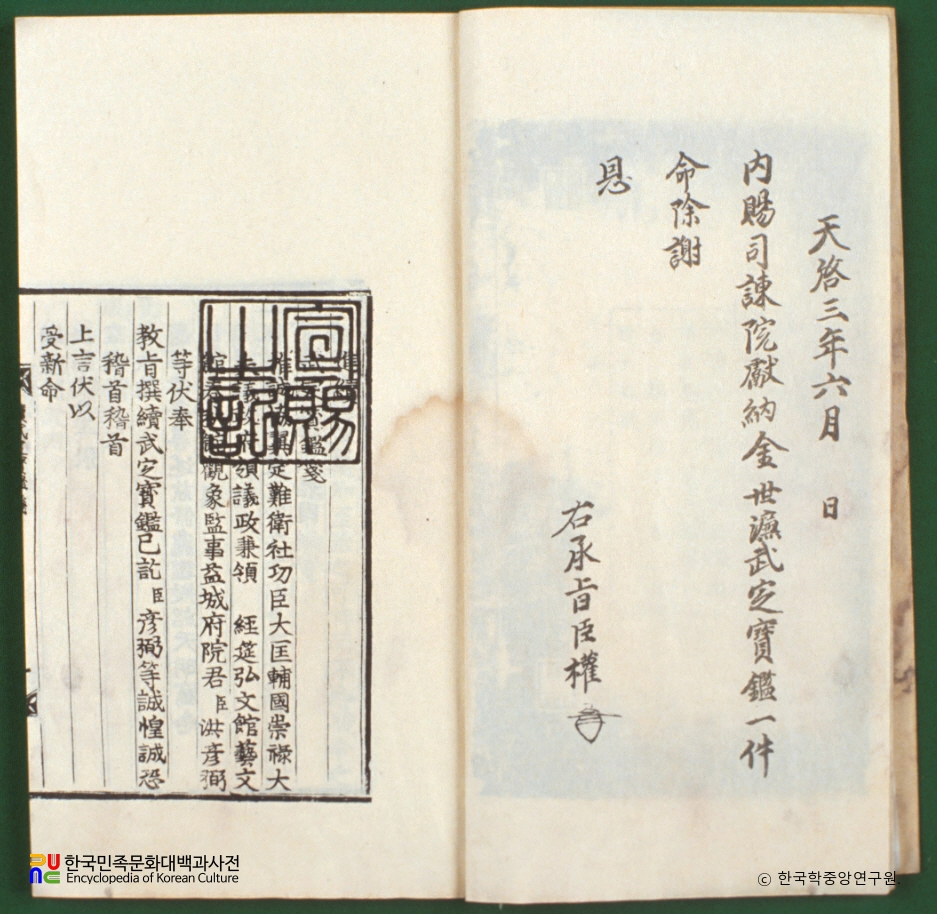 天啓三年六月 日
內賜司諫院獻納金世濂武定寶鑑一件
命除謝
恩
右承旨臣權
宣賜之記
進續
武定寶鑑箋
推誠協翼定難衛社功臣大匡輔國崇祿大
夫議政府領議政兼領 經筵弘文館藝文
館春秋館觀象監事益城府院君臣洪彦弼
等伏奉
敎旨撰續武定寶鑑已訖臣彦弼等誠惶誠恐
稽首稽首
上言伏以
受新命
한국민족문화대백과사전
Encyclopedia of Korean Culture
ⓒ 한국학중앙연구원.